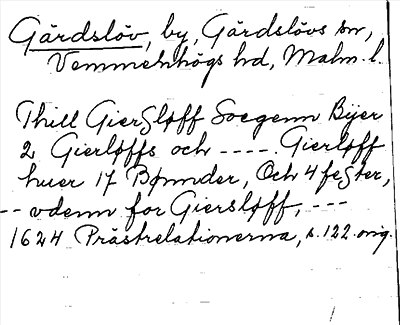 Gårdslöv, by, Gårdslövs sn,
Vemmenhögs hd, Malm. l.
Thill Gierßløff Soegenn Bÿer
2 Gierløffs och ---- Gierløff
huer 17 Bønnder, Och 4 feßter,
-- vdenn for Giersløff, ---
1624 Prästrelationerna, s. 122. orig.